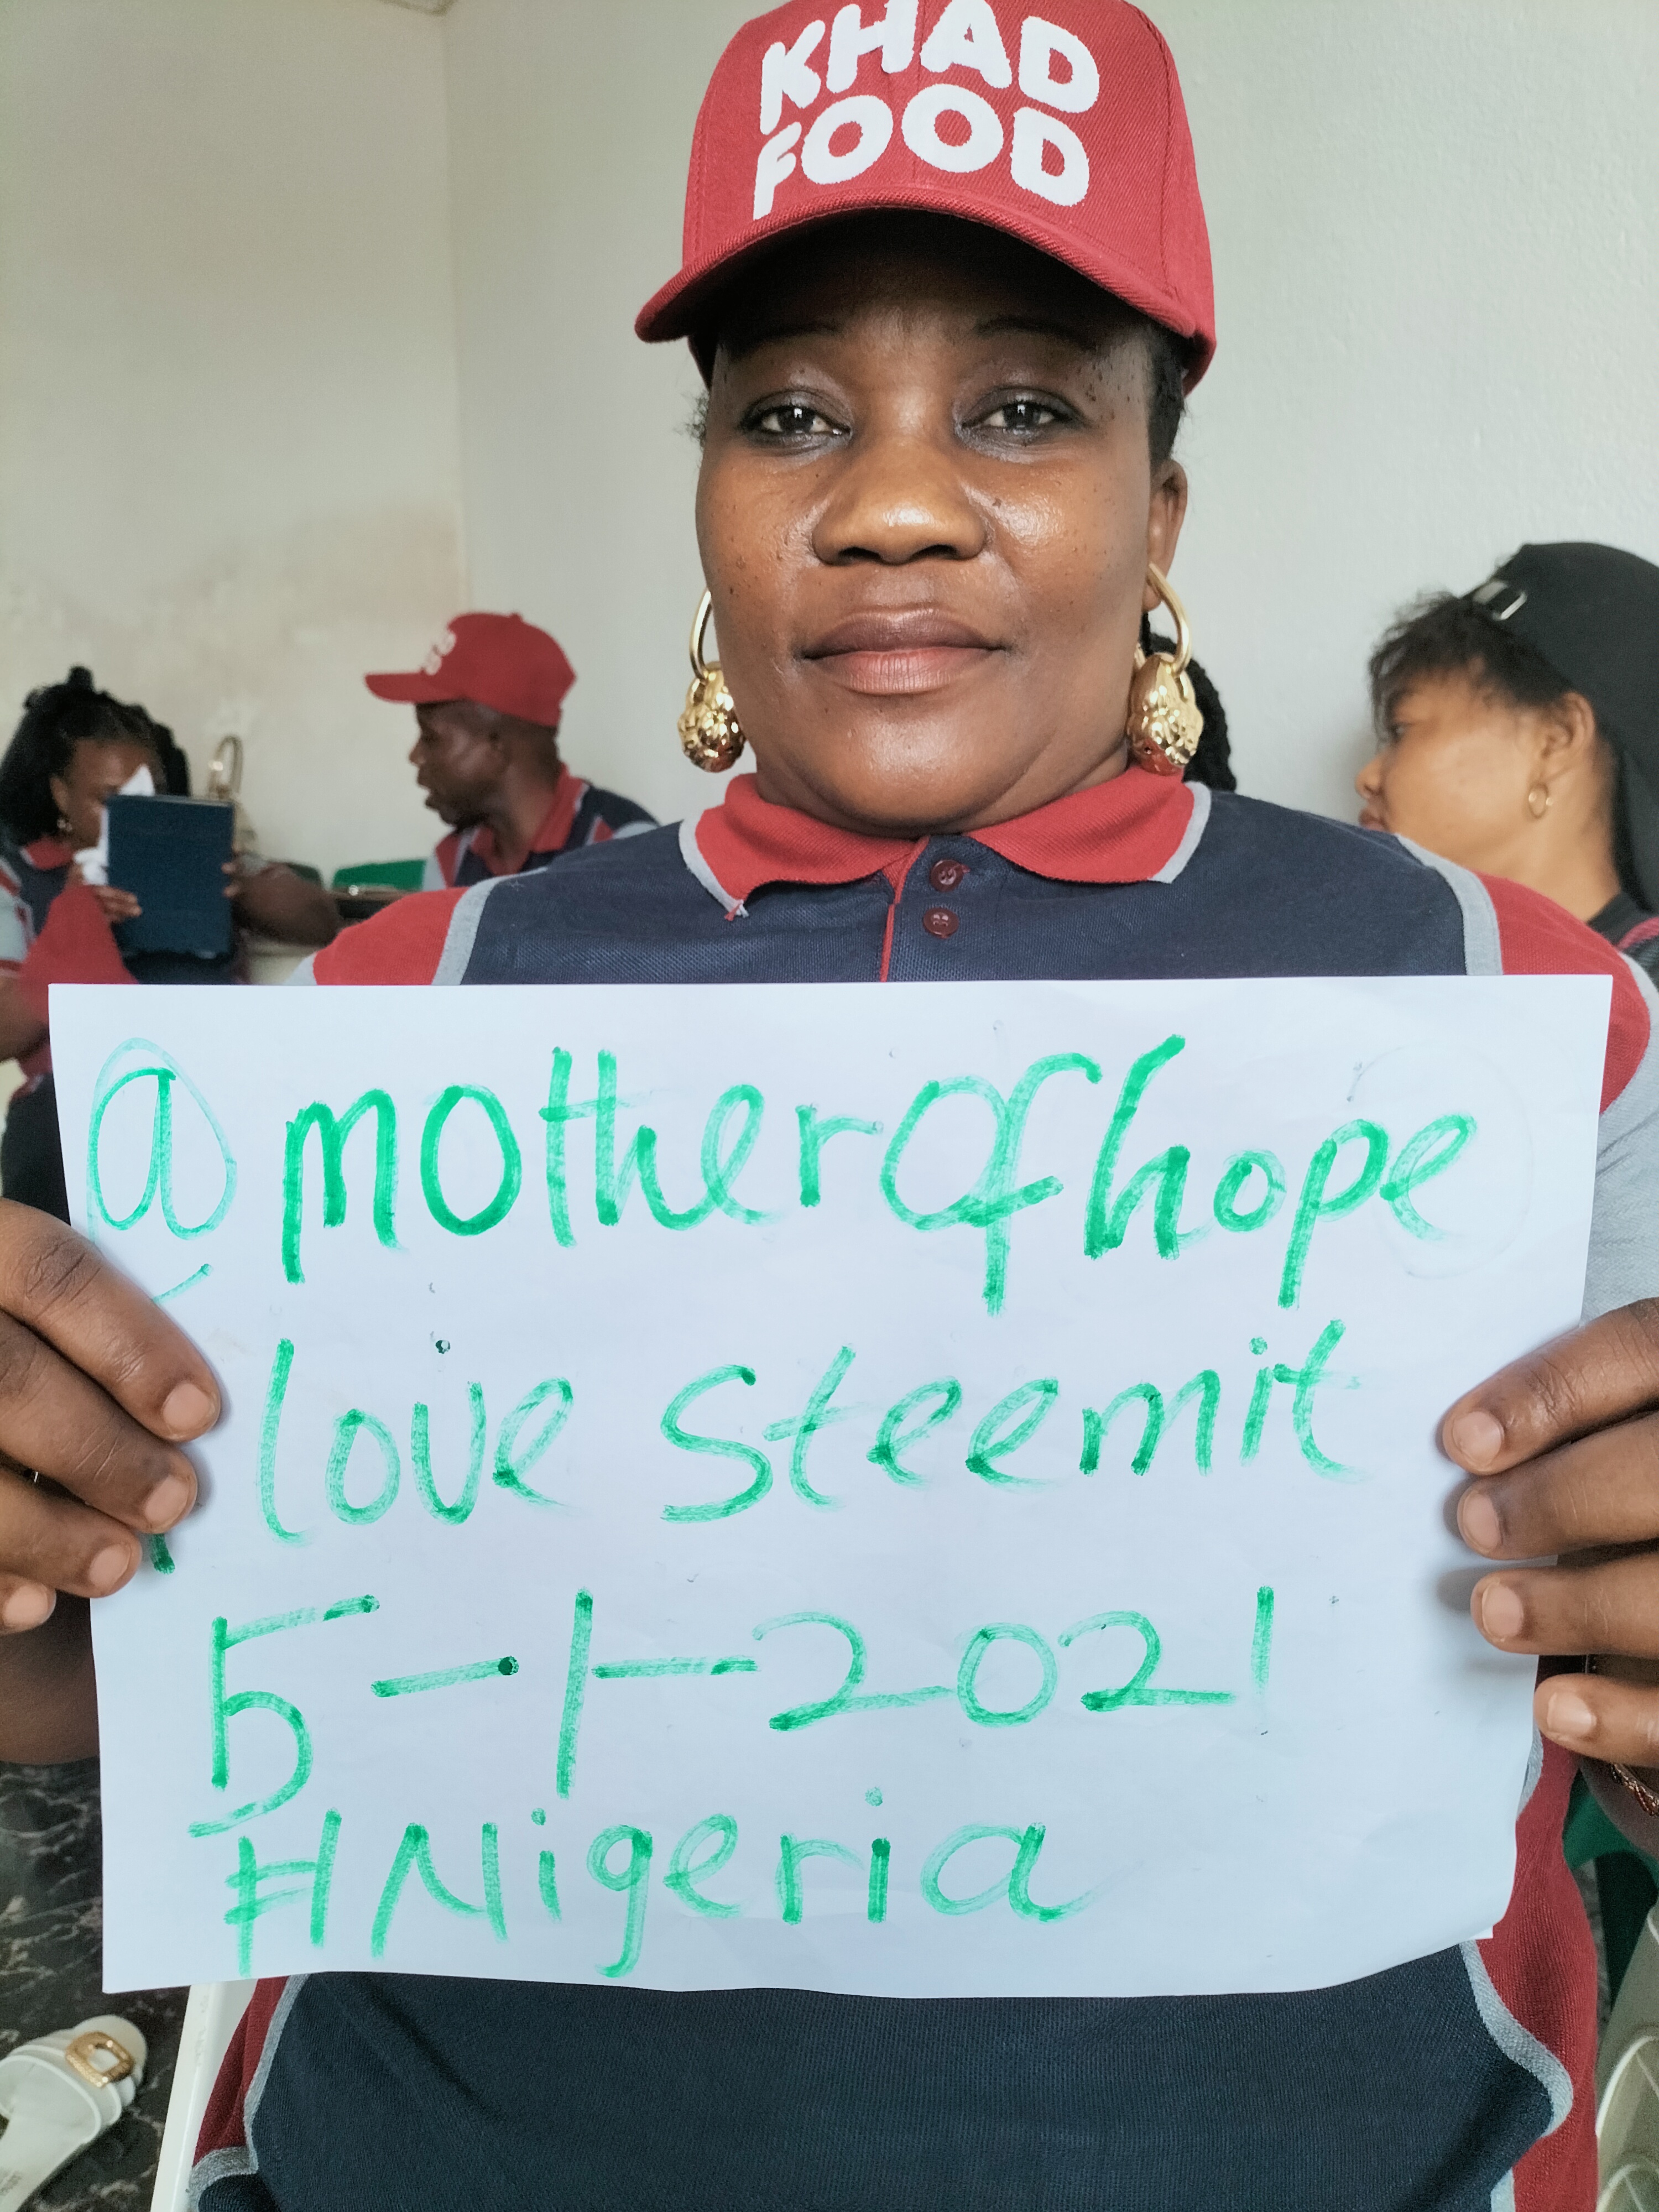 KHAD
FOOD
@motherofhope
love steemit
5-1-2021
#Nigeria